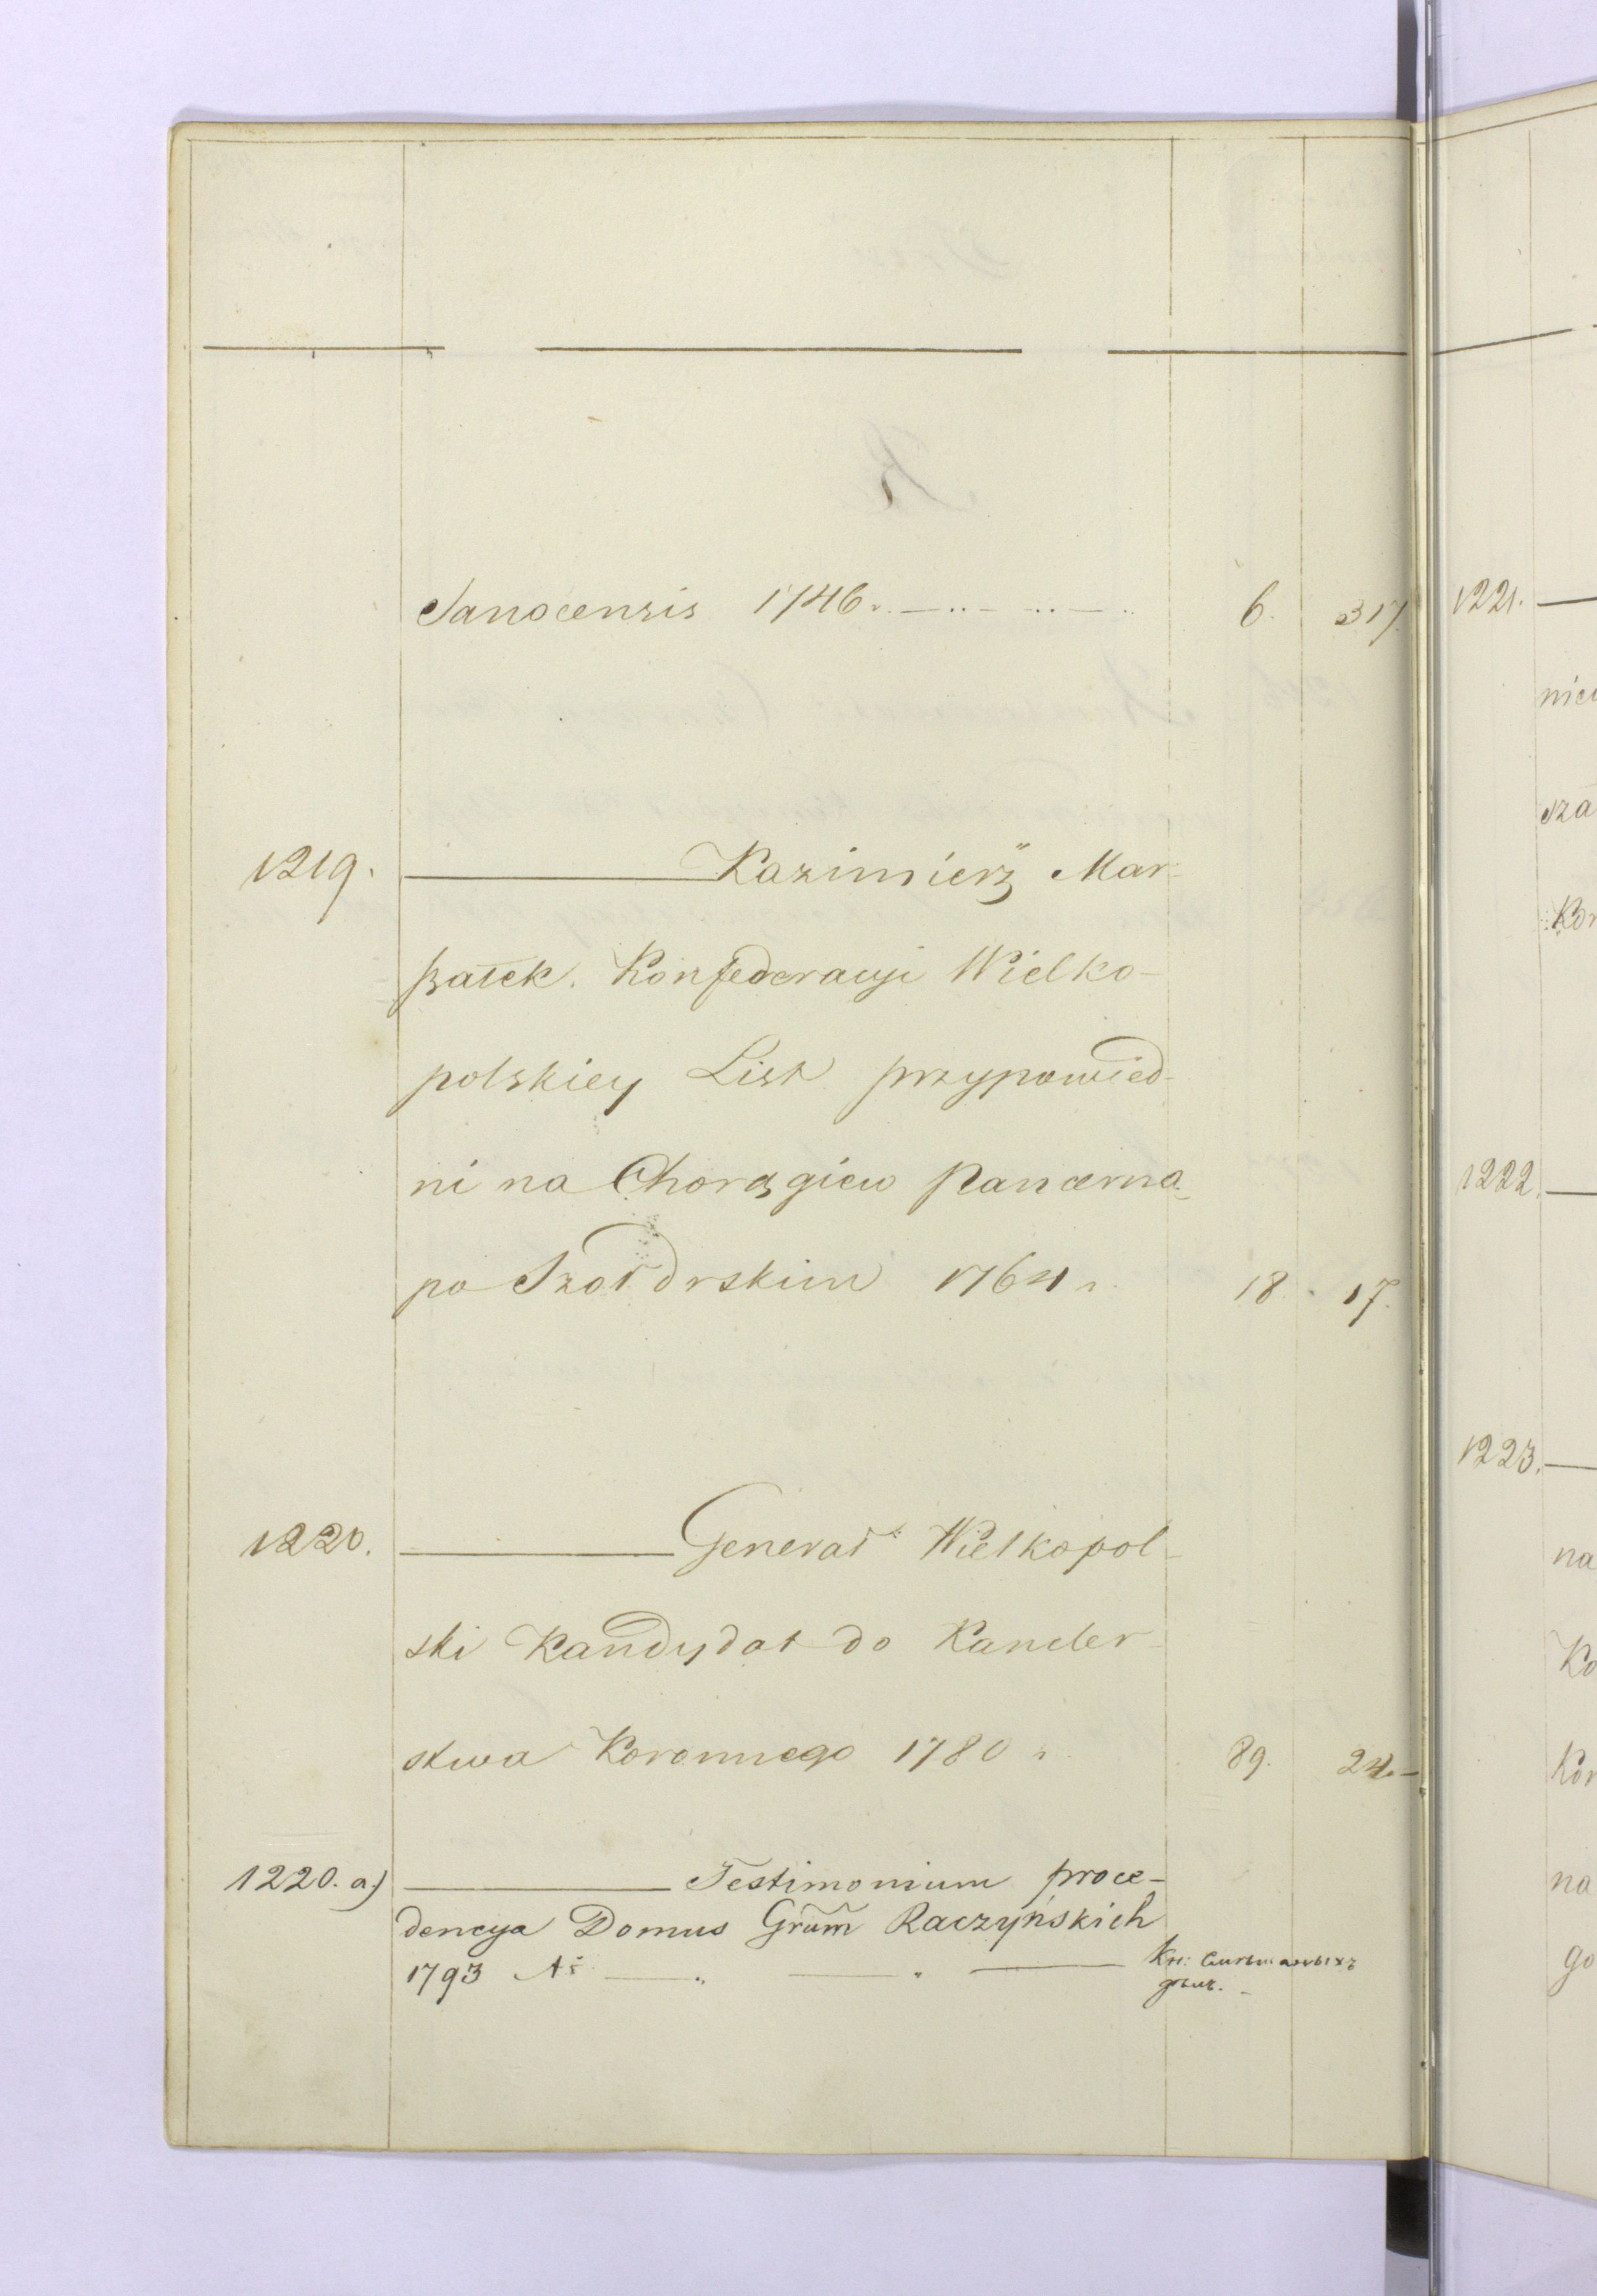 R
Sanocensis 1746. 6. 317.
1219. Kazimierz Mar-
szałek. Konfederacyi Wielko-
polskiey List przypowied-
ni na Chorągiew Pancerną
po Szołdrskim 1764 r. 18. 17.
1220. Generał Wielkopol-
ski Kandydat do Kancler-
stwa Koronnego 1780 r. 89. 24.
1220. a) Testimonium proce-
dencya Domus Grum Raczyńskich
1793 Кн:
дѣлъ.
1221.
1222.
1223.